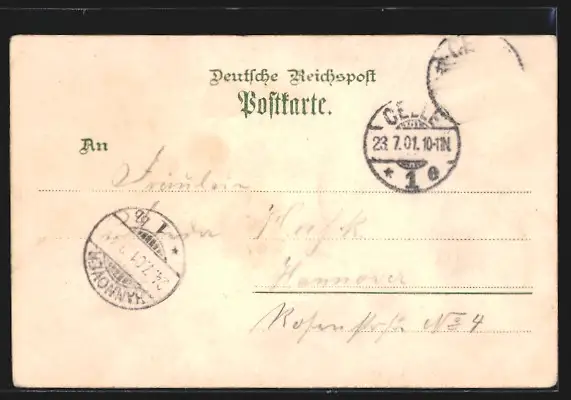 Deutsche Reichspost
Postkarte.
CELLE
23.7.01.10-11N.
* 1 o
An
Fräulein
Hannover
Rosenstraße No 4
HANNOVER
24.7.01
* 1